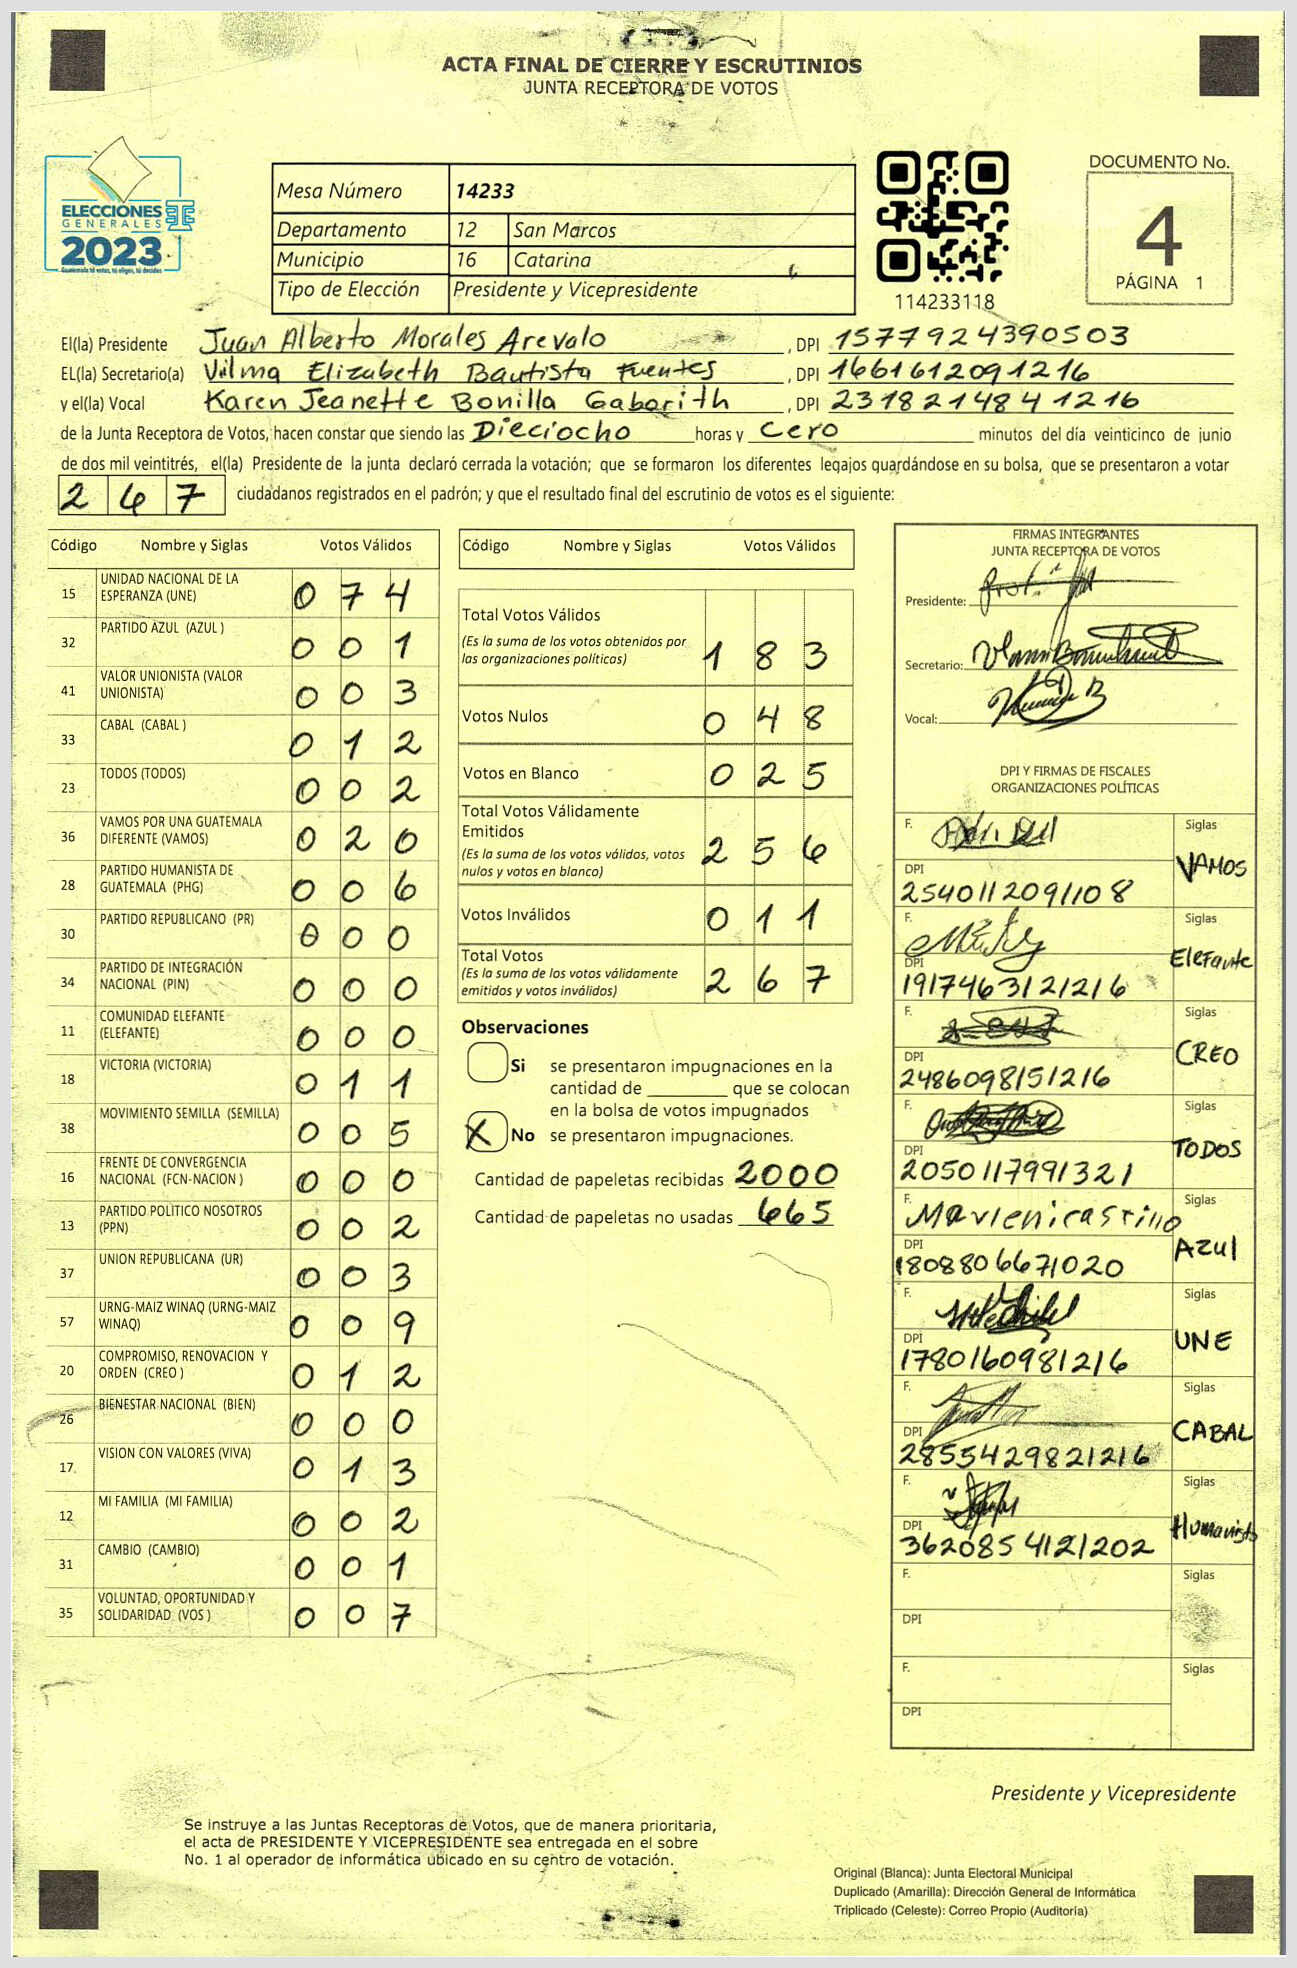 ACTA FINAL DE CIERRE Y ESCRUTINIOS
JUNTA RECEPTORA DE VOTOS
ELECCIONES
GENERALES
2023
Guatemala tú votas, tú eliges, tú decides
Mesa Número 14233
Departamento 12 San Marcos
Municipio 16 Catarina
Tipo de Elección Presidente y Vicepresidente
114233118
DOCUMENTO No.
4
PÁGINA 1
El(la) Presidente Juan Alberto Morales Arevalo, DPI 1577924390503
EL(la) Secretario(a) Vilma Elizabeth Bautista Fuentes, DPI 1661612091216
y el(la) Vocal Karen Jeanette Bonilla Gaborith, DPI 2318214841216
de la Junta Receptora de Votos, hacen constar que siendo las Dieciocho horas y cero minutos del día veinticinco de junio
de dos mil veintitrés, el(la) Presidente de la junta declaró cerrada la votación; que se formaron los diferentes legajos guardándose en su bolsa, que se presentaron a votar
267 ciudadanos registrados en el padrón; y que el resultado final del escrutinio de votos es el siguiente:
Código Nombre y Siglas Votos Válidos
15 UNIDAD NACIONAL DE LA ESPERANZA (UNE) 074
32 PARTIDO AZUL (AZUL ) 001
41 VALOR UNIONISTA (VALOR UNIONISTA) 003
33 CABAL (CABAL ) 012
23 TODOS (TODOS) 002
36 VAMOS POR UNA GUATEMALA DIFERENTE (VAMOS) 020
28 PARTIDO HUMANISTA DE GUATEMALA (PHG) 006
30 PARTIDO REPUBLICANO (PR) 000
34 PARTIDO DE INTEGRACIÓN NACIONAL (PIN) 000
11 COMUNIDAD ELEFANTE (ELEFANTE) 000
18 VICTORIA (VICTORIA) 011
38 MOVIMIENTO SEMILLA (SEMILLA) 005
16 FRENTE DE CONVERGENCIA NACIONAL (FCN-NACION ) 000
13 PARTIDO POLITICO NOSOTROS (PPN) 002
37 UNION REPUBLICANA (UR) 003
57 URNG-MAIZ WINAQ (URNG-MAIZ WINAQ) 009
20 COMPROMISO, RENOVACION Y ORDEN (CREO ) 012
26 BIENESTAR NACIONAL (BIEN) 000
17 VISION CON VALORES (VIVA) 013
12 MI FAMILIA (MI FAMILIA) 002
31 CAMBIO (CAMBIO) 001
35 VOLUNTAD, OPORTUNIDAD Y SOLIDARIDAD (VOS ) 007
Código Nombre y Siglas Votos Válidos
Total Votos Válidos
(Es la suma de los votos obtenidos por las organizaciones políticas) 183
Votos Nulos 048
Votos en Blanco 025
Total Votos Válidamente Emitidos
(Es la suma de los votos válidos, votos nulos y votos en blanco) 256
Votos Inválidos 011
Total Votos
(Es la suma de los votos válidamente emitidos y votos inválidos) 267
Observaciones
Si se presentaron impugnaciones en la
cantidad de ________ que se colocan
en la bolsa de votos impugnados
X No se presentaron impugnaciones.
Cantidad de papeletas recibidas 2000
Cantidad de papeletas no usadas 665
FIRMAS INTEGRANTES
JUNTA RECEPTORA DE VOTOS
Presidente:
Secretario:
Vocal:
DPI Y FIRMAS DE FISCALES
ORGANIZACIONES POLÍTICAS
F. Siglas VAMOS
DPI 2540112091108
F. Siglas Elefante
DPI 1917463121216
F. Siglas CREO
DPI 2486098151216
F. Siglas TODOS
DPI 2050117991321
F. Siglas Azul
DPI 1808806671020
F. Siglas UNE
DPI 1780160981216
F. Siglas CABAL
DPI 2855429821216
F. Siglas Humanista
DPI 3620854121202
F. Siglas
DPI
F. Siglas
DPI
Presidente y Vicepresidente
Se instruye a las Juntas Receptoras de Votos, que de manera prioritaria,
el acta de PRESIDENTE Y VICEPRESIDENTE sea entregada en el sobre
No. 1 al operador de informática ubicado en su centro de votación.
Original (Blanca): Junta Electoral Municipal
Duplicado (Amarilla): Dirección General de Informática
Triplicado (Celeste): Correo Propio (Auditoria)